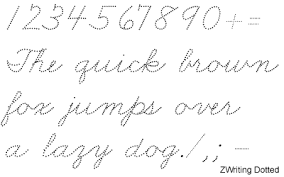 1234567890+=
The quick brown
fox jumps over
a lazy dog./,;-
ZWriting Dotted